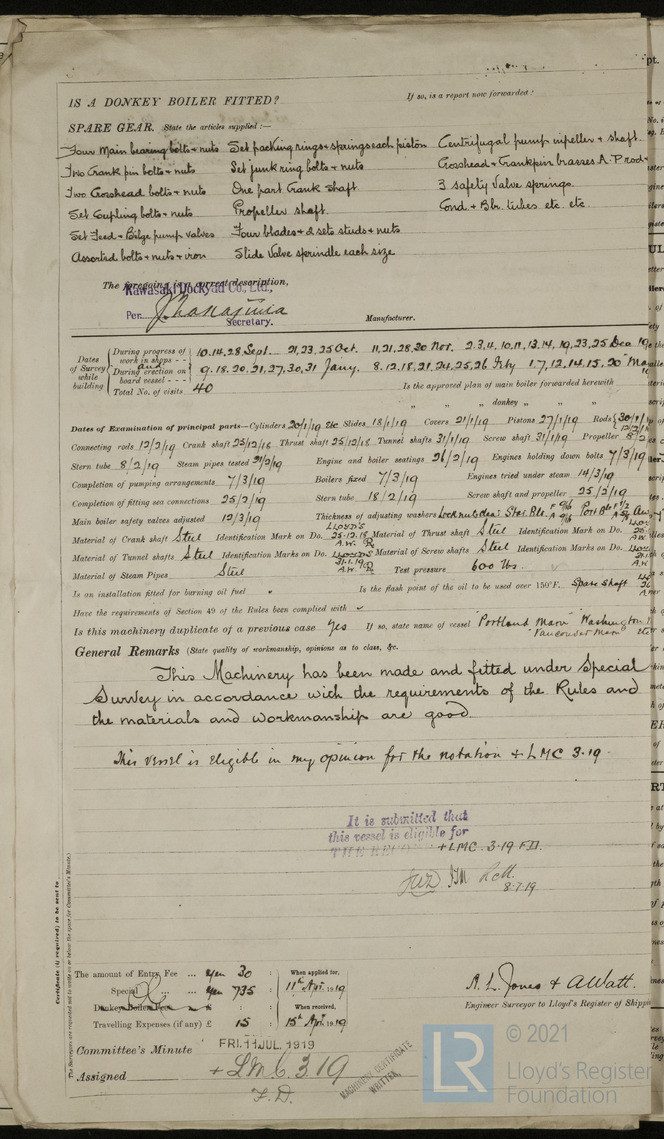 IS A DONKEY BOILER FITTED? If so, is a report now forwarded?
SPARE GEAR. State the articles supplied :—
Four Main bearing bolts & nuts Set packing rings & springs each piston Centrifugal pump inpeller & shaft.
Two Crank pin bolts & nuts Set junk ring bolts & nuts Crosshead & Crankpin brasses A.P rod
Two Crosshead bolts & nuts One part Crank shaft 3 safety valve springs.
Set Coupling bolts & nuts Propeller shaft. Cond & Blr. tubes etc. etc.
Set Feed & Bilge pump valves Four blades & 2 sets studs & nuts
Assorted bolts & nuts & iron Slide Valve sprindle each size
The foregoing is a correct description,
Kawasaki Dockyard Co., Ltd.,
Per Secretary. Manufacturer.
Dates of Survey while building
During progress of work in shops - - 10.14.28 Sept. 21,23,25 Oct. 11,21,28,30 Nov. 2.3.4,10,11,13,14,19,23,25 Dec 19
and
During erection on board vessel - - - 9.18.20,21,27,30,31 Jany. 8.12,18,21,24,25,26 Feby 1.7,12,14,15,20
Total No. of visits 40 Is the approved plan of main boiler forwarded herewith
" " " donkey " " "
Dates of Examination of principal parts—Cylinders 20/1/19 etc Slides 18/1/19 Covers 21/1/19 Pistons 27/1/19 Rods 30/1/19
Connecting rods 12/2/19 Crank shaft 25/12/18 Thrust shaft 25/12/18 Tunnel shafts 31/1/19 Screw shaft 31/1/19 Propeller 8/2
Stern tube 8/2/19 Steam pipes tested Engine and boiler seatings 26/2/19 Engines holding down bolts 7/3/19
Completion of pumping arrangements 7/3/19 Boilers fixed 7/3/19 Engines tried under steam 14/3/19
Completion of fitting sea connections 25/2/19 Stern tube 18/2/19 Screw shaft and propeller 25/2/19
Main boiler safety valves adjusted 12/3/19 Thickness of adjusting washers
Material of Crank shaft Steel Identification Mark on Do. LLOYD'S 25.12.18 A.W. Material of Thrust shaft Steel Identification Mark on Do.
Material of Tunnel shafts Steel Identification Marks on Do. LLOYD'S 31.1.19 A.W. Material of Screw shafts Steel Identification Marks on Do.
Material of Steam Pipes Steel Test pressure 600 lbs.
Is an installation fitted for burning oil fuel Is the flash point of the oil to be used over 150°F. Spare shaft
Have the requirements of Section 49 of the Rules been complied with
Is this machinery duplicate of a previous case Yes If so, state name of vessel "Portland Maru" Washington
"Vancouver Maru
General Remarks (State quality of workmanship, opinions as to class, &c.
This Machinery has been made and fitted under Special
Survey in accordance with the requirements of the Rules and
the materials and workmanship are good.
This vessel is eligible in my opinion for the notation + LMC 3.19.
It is submitted that
this vessel is eligible for
THE RECORD + LMC. 3.19 FD.
8.7.19
Certificate (if required) to be sent to
The Surveyors are requested not to write on or below the space for Committee's Minute.
The amount of Entry Fee ... Yen 30 : When applied for,
Special ... Yen 735 : 11th Apr. 1919
Donkey Boiler Fee ... £ : When received,
Travelling Expenses (if any) £ 15 : 15th Apr. 1919
A. L. Jones & A Watt.
Engineer Surveyor to Lloyd's Register of Shipping
Committee's Minute FRI. 11 JUL. 1919
Assigned + LMC. 3.19
F.D.
MACHINERY CERTIFICATE
WRITTEN.
LR © 2021
Lloyd's Register
Foundation